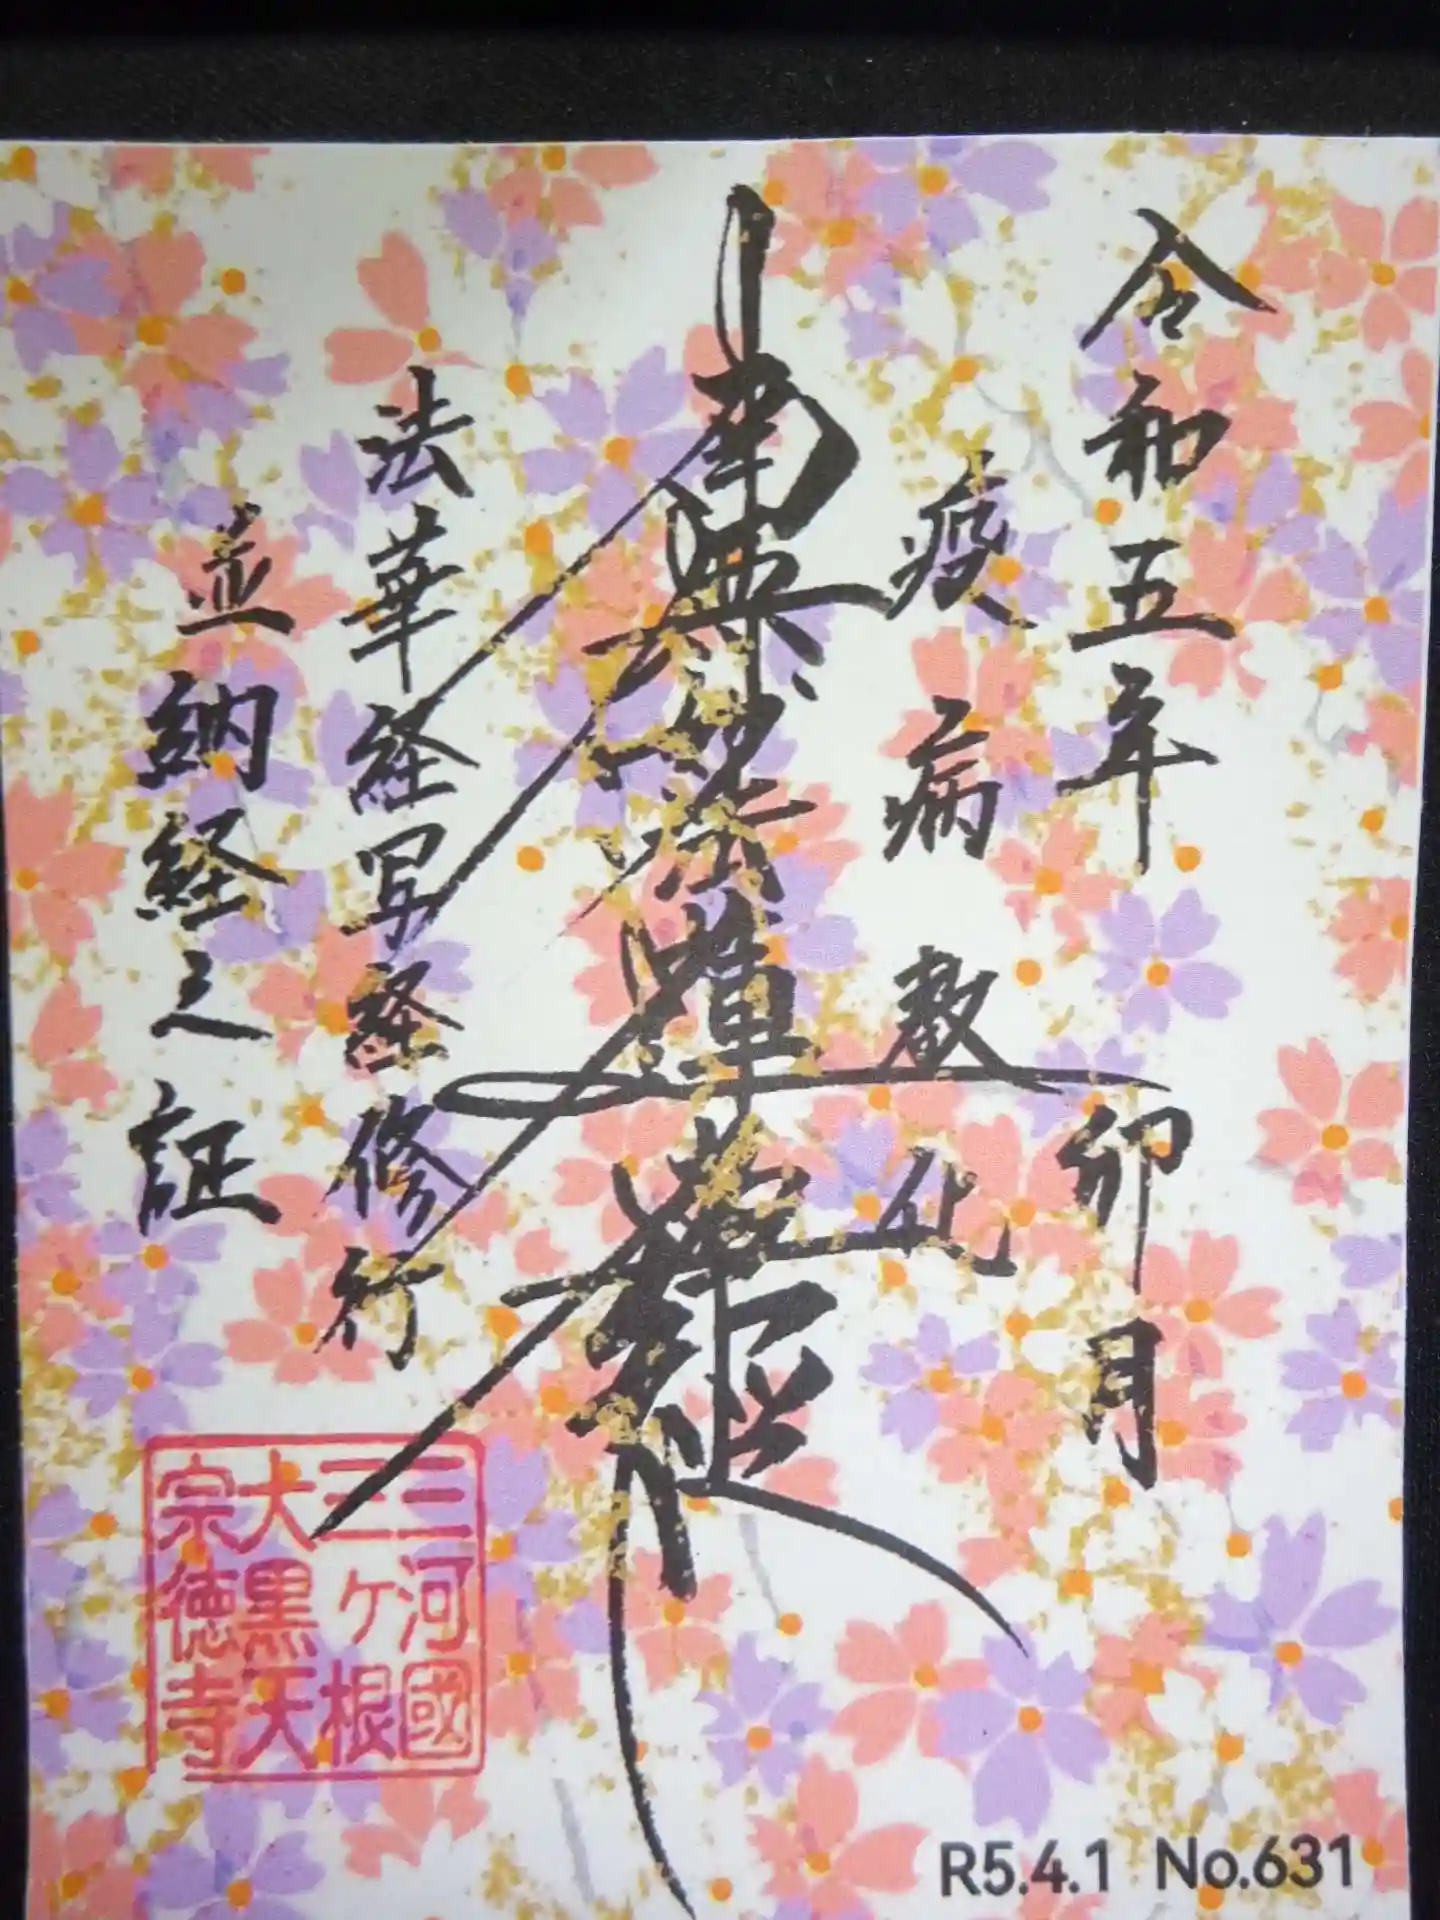 令和五年 卯月
疫病 教化
南無妙法蓮華経
法華経写経修行
並納経之証
三河國
三ヶ根
大黒天
宗徳寺
R5.4.1 No.631